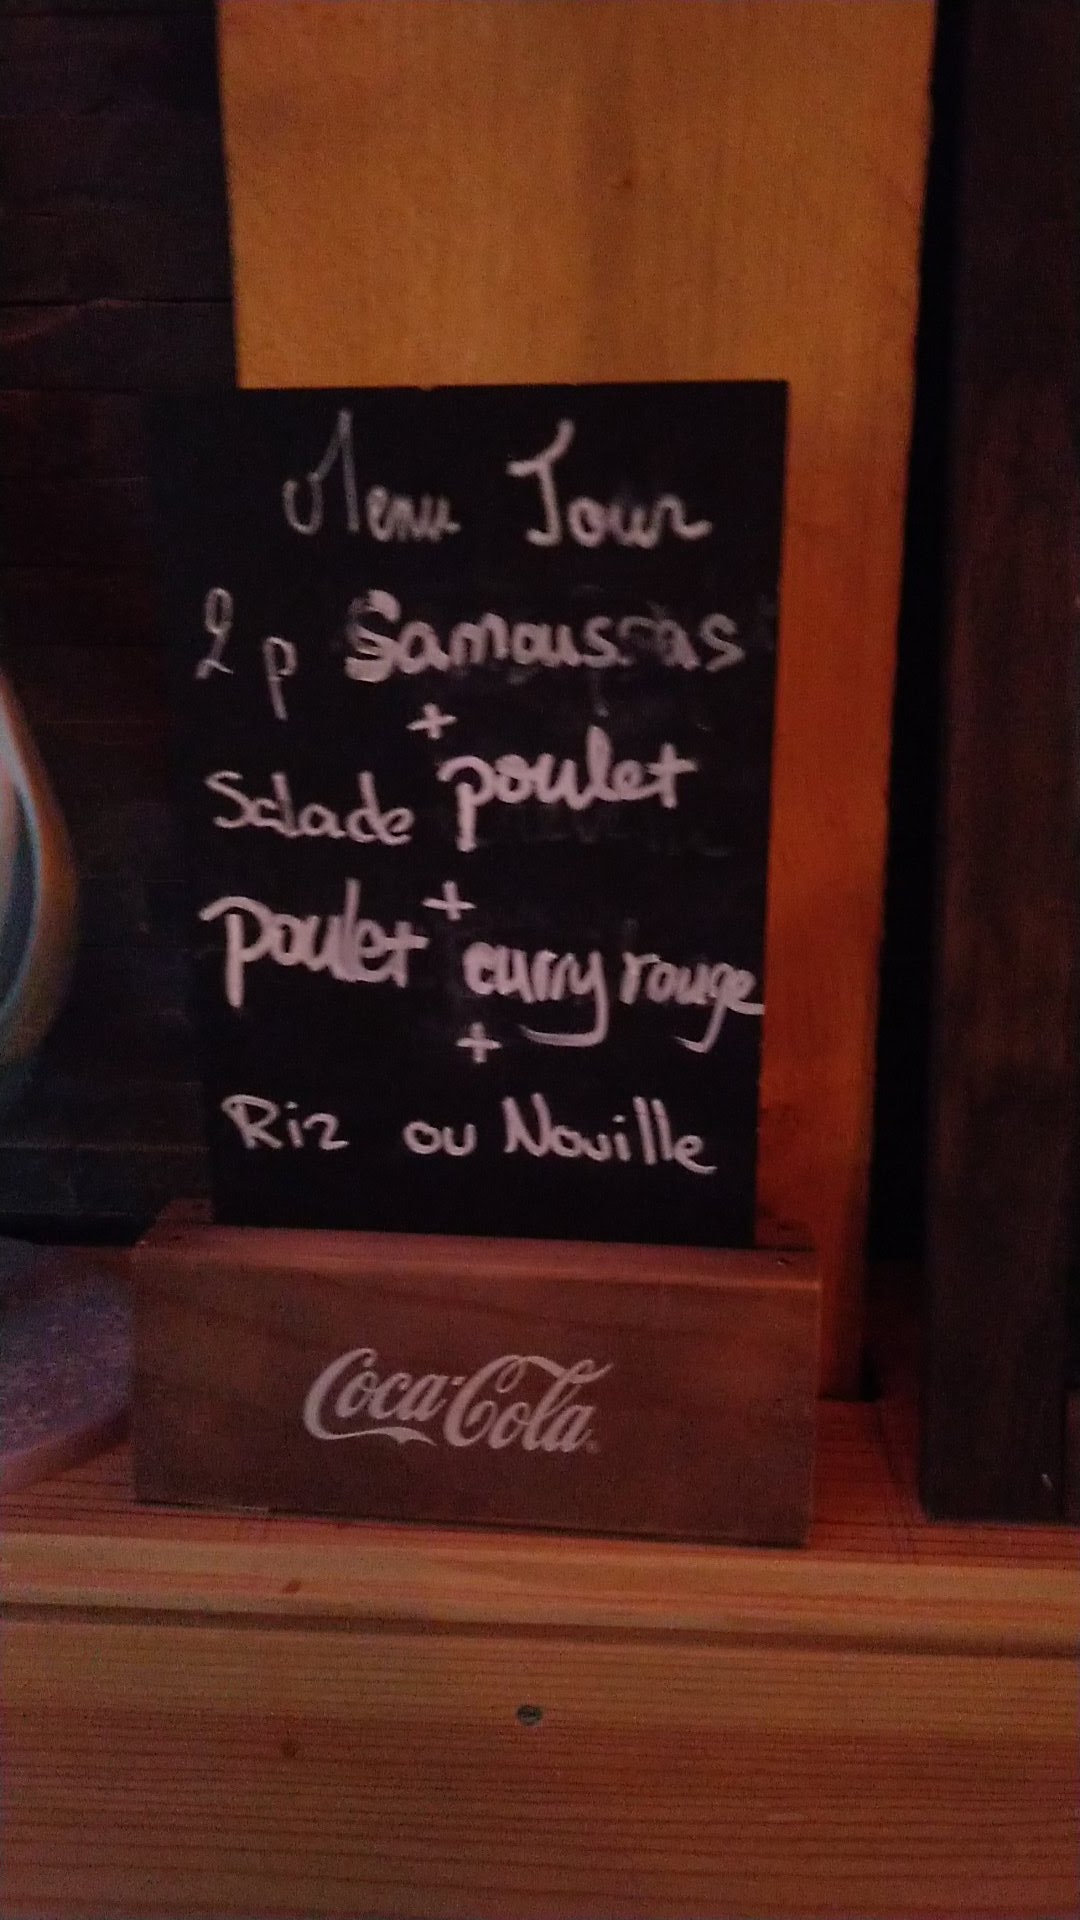 Menu Jour
2 p Samoussas
+
Salade poulet
+
poulet curry rouge
+
Riz ou Nouille
Coca-Cola